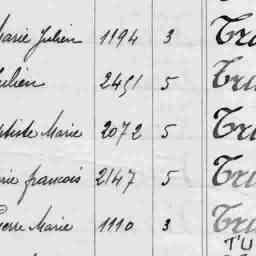 Marie Julien 1194 3 Tru
Julien 2451 5 Tru
ptiste Marie 2072 5 Tru
rie francois 2147 5 Tru
ierre Marie 1110 3 Tru
T'U